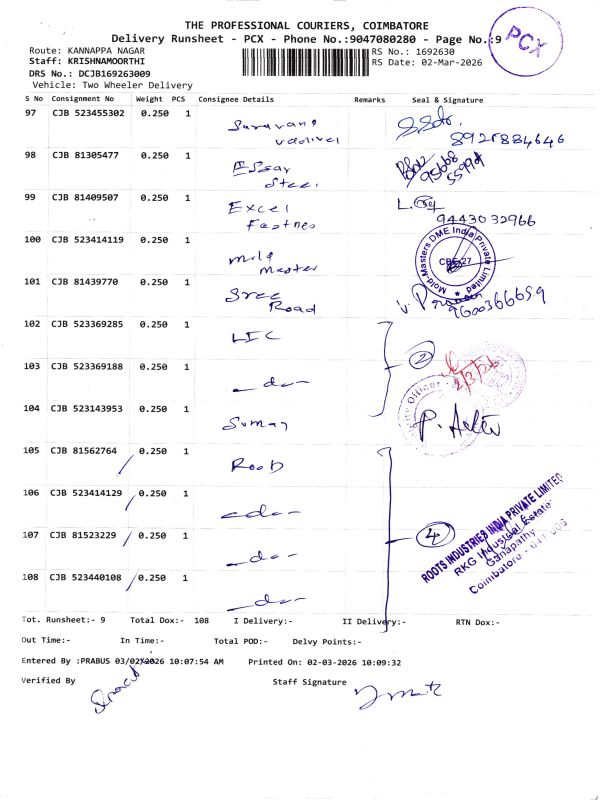 THE PROFESSIONAL COURIERS, COIMBATORE
Delivery Runsheet - PCX - Phone No.:9047080280 - Page No.:9
PCX
Route: KANNAPPA NAGAR
RS No.: 1692630
Staff: KRISHNAMOORTHI
RS Date: 02-Mar-2026
DRS No.: DCJB169263009
Vehicle: Two Wheeler Delivery
S No Consignment No Weight PCS Consignee Details Remarks Seal & Signature
97 CJB 523455302 0.250 1
8925884646
98 CJB 81305477 0.250 1 Essay
Steel
99 CJB 81409507 0.250 1 Excel
9443032966
100 CJB 523414119 0.250 1
Master
Mold-Masters DME India Private Limited
CBE-27
101 CJB 81439770 0.250 1 Sree
Road
102 CJB 523369285 0.250 1 LIC
2
2/3/26
103 CJB 523369188 0.250 1 -do-
104 CJB 523143953 0.250 1
105 CJB 81562764 0.250 1
106 CJB 523414129 0.250 1 -do-
4
ROOTS INDUSTRIES INDIA PRIVATE LIMITED
RKG Industrial Estate
Ganapathy
Coimbatore - 641 006
107 CJB 81523229 0.250 1 -do-
108 CJB 523440108 0.250 1 -do-
Tot. Runsheet:- 9 Total Dox:- 108 I Delivery:- II Delivery:- RTN Dox:-
Out Time:- In Time:- Total POD:- Delvy Points:-
Entered By :PRABUS 03/02/2026 10:07:54 AM Printed On: 02-03-2026 10:09:32
Verified By Staff Signature